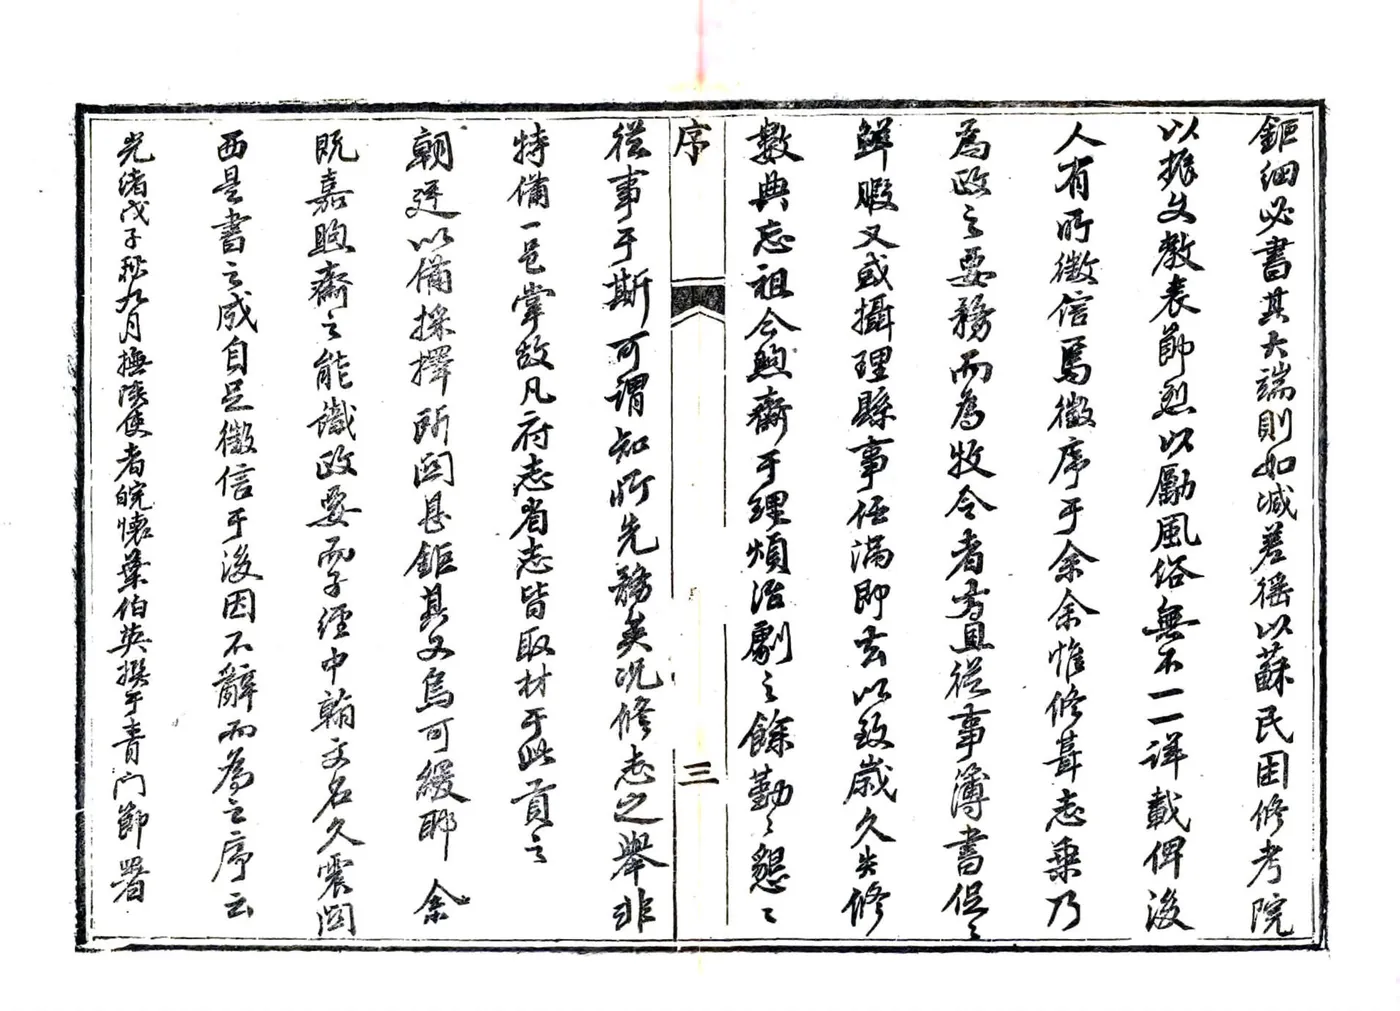 鉅細必書其大端則如減差徭以蘇民困修考院
以振文教表節烈以勵風俗無不一一詳載俾後
人有所徵信焉徵序于余余惟修葺志乘乃
為政之要務而為牧令者方且從事簿書促之
鮮暇又或攝理縣事任滿即去以致歲久失修
數典忘祖今煦齋于理煩治劇之餘勤勤懇懇
序
三
從事于斯可謂知所先務矣況修志之舉非
特備一邑掌故凡府志省志皆取材于此貢之
朝廷以備採擇所關甚鉅其又烏可緩耶 余
既嘉煦齋之能識政要而子經中翰文名久震關
西是書之成自足徵信于後因不辭而為之序云
光緒戊子秋九月撫陝使者皖懷葉伯英撰于青門節署